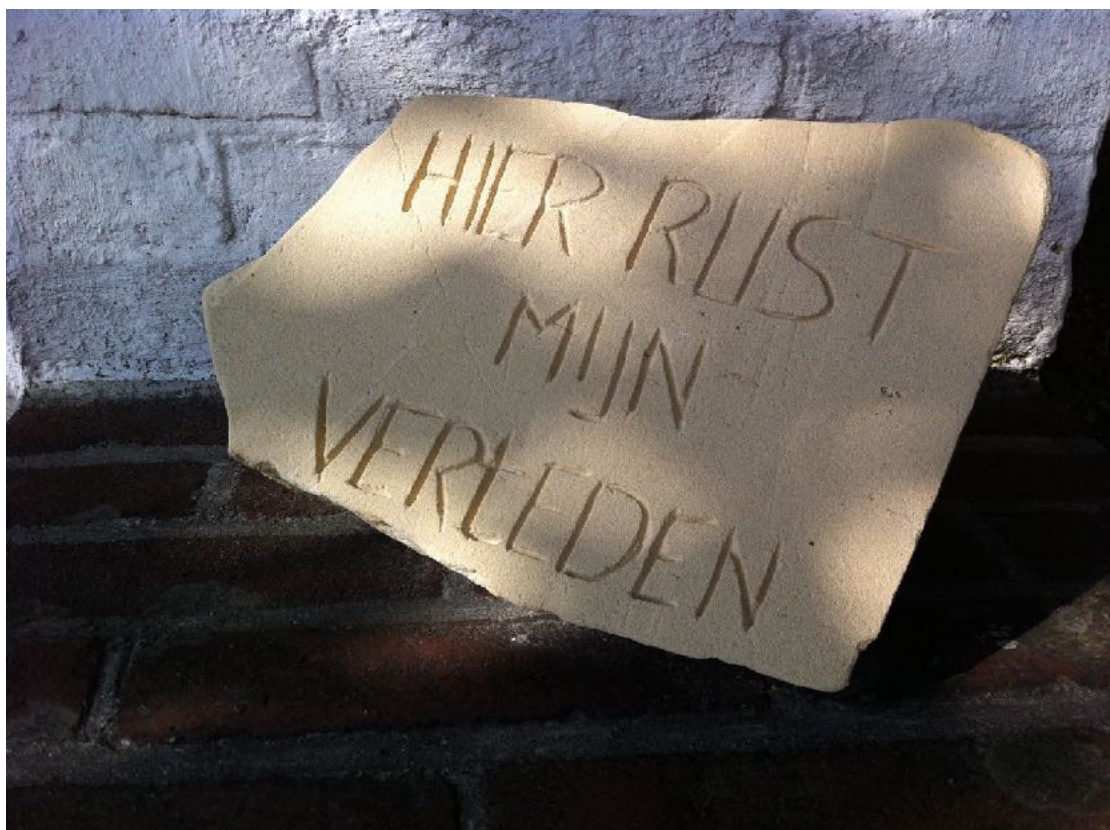 HIER RUST
MIJN
VERLEDEN